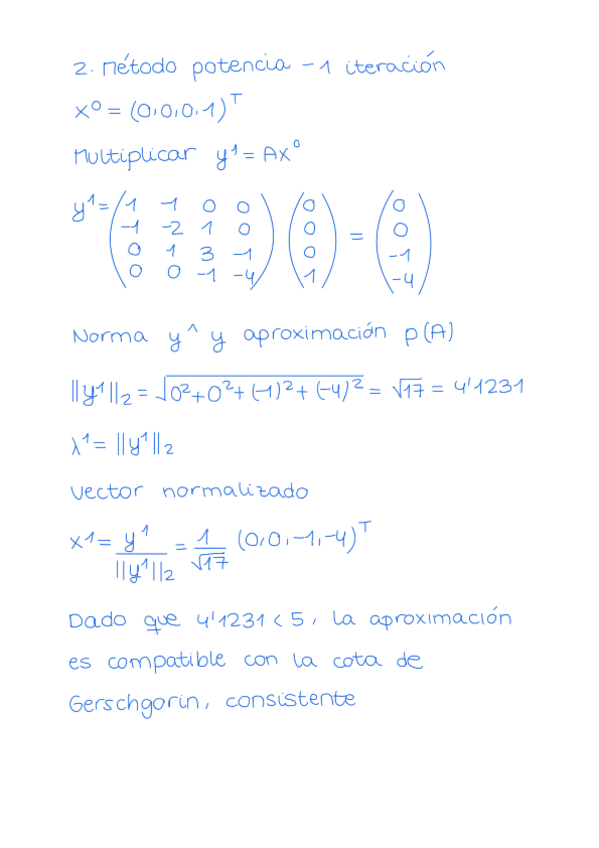 2. Método potencia - 1 iteración
x⁰ = (0,0,0,1)ᵀ
Multiplicar y¹ = Ax⁰
y¹ = (1 -1 0 0) (0) = (0)
(-1 -2 1 0) (0) (0)
(0 1 3 -1) (0) (-1)
(0 0 -1 -4) (1) (-4)
Norma y^ y aproximación p(A)
||y¹||₂ = √(0²+0²+(-1)²+(-4)²) = √17 = 4'1231
λ¹ = ||y¹||₂
Vector normalizado
x¹ = y¹/||y¹||₂ = 1/√17 (0,0,-1,-4)ᵀ
Dado que 4'1231 < 5, la aproximación
es compatible con la cota de
Gerschgorin, consistente